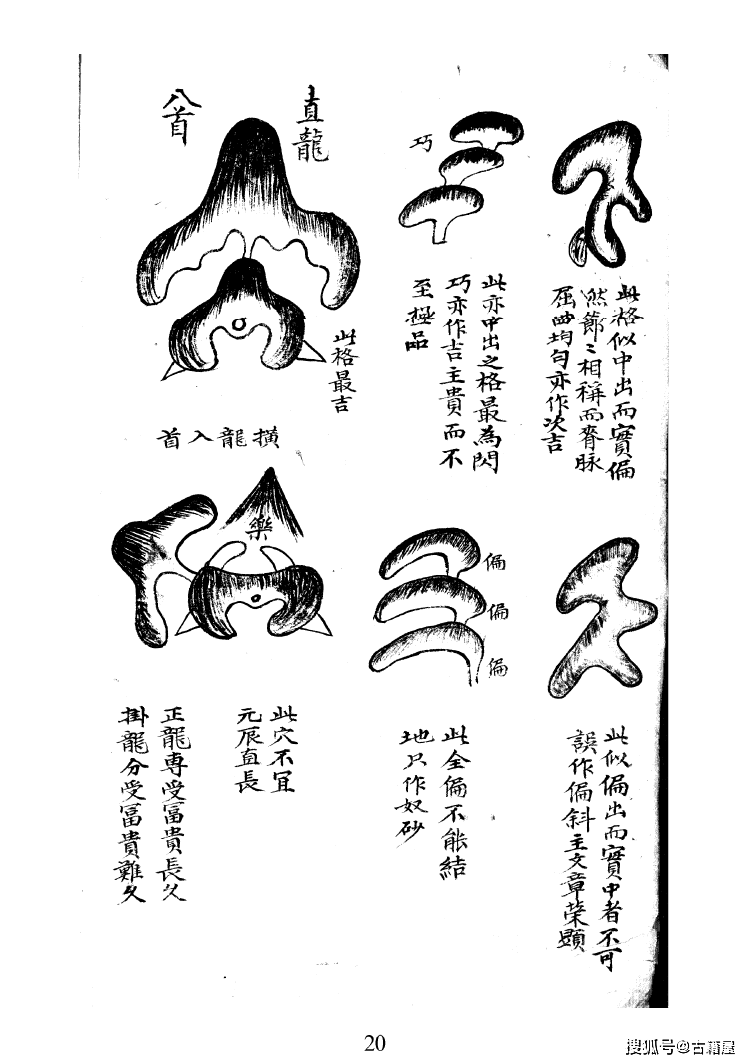 此格似中出而實偏
然節〻相稱而脊脉
屈曲均匀亦作次吉
巧
此亦中出之格最為閃
巧亦作吉主貴而不
至極品
直龍
八首
此格最吉
橫龍入首
樂
此似偏出而實中者不可
誤作偏斜主文章榮顯
偏
偏
偏
此全偏不能結
地只作奴砂
此穴不宜
元辰直長
正龍專受富貴長久
掛龍分受富貴難久
20
搜狐号@古籍屋